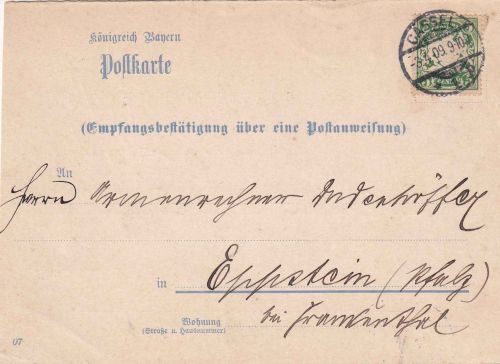 Königreich Bayern
Postkarte
CASSEL
09.9-10
(Empfangsbestätigung über eine Postanweisung)
An
Herrn Armenrechner
in Eppstein (Pfalz)
Wohnung bei Frankenthal
(Straße u. Hausnummer)
07